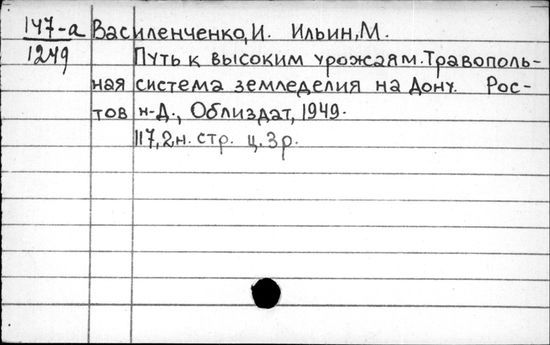 147-а Василенченко,И. Ильин,М.
1249 Путь к высоким урожаям.Траvополь-
ная система земледелия на Дону. Рос-
тов н-Д., Облиздат, 1949.
117,2,н. стр. ц. 3 р.